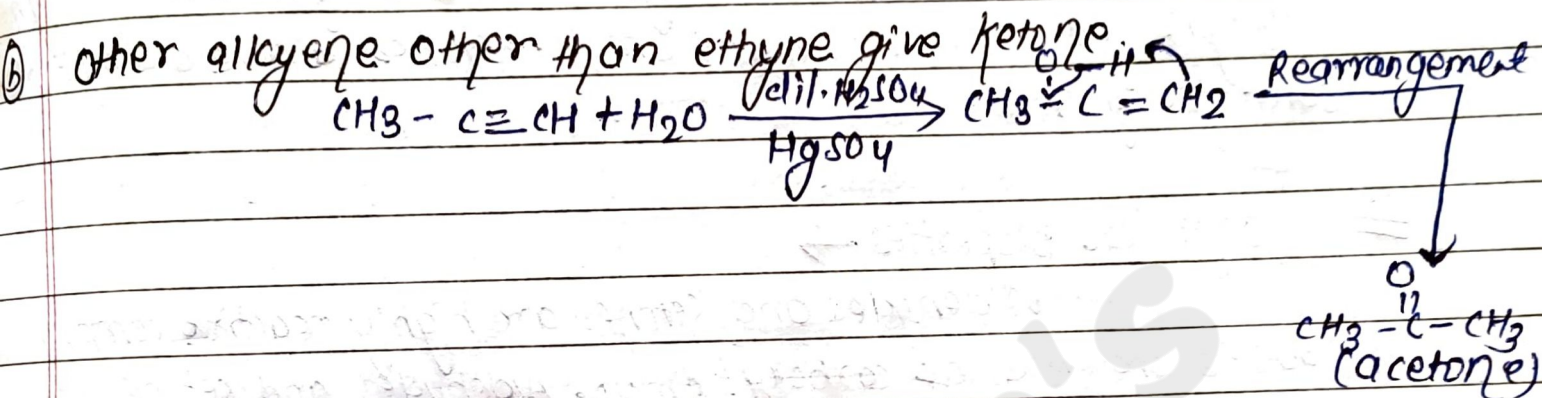 (b) Other alkyene other than ethyne give ketone.
CH3 - C ≡ CH + H2O dil. H2SO4 / HgSO4 → CH3 - C = CH2 Rearrangement
O - H
O
||
CH3 - C - CH3
(acetone)